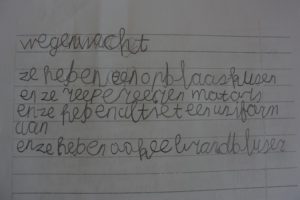 wegenwacht
ze heben een opblaaskusen
en ze reepereeren motors
en ze heben altret een uniform
aan
en ze heben ook eel brandbluser